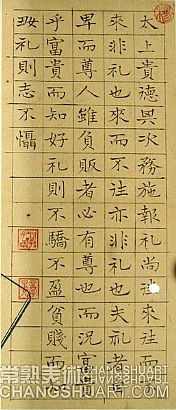 太上貴德其次務施報礼尚往來往而
來非礼也來而不往亦非礼也夫礼者
卑而尊人雖負販者必有尊也而況富
乎富貴而知好礼則不驕不盈貧賤而
好礼則志不懾
常熟美术
CHANGSHUART.COM